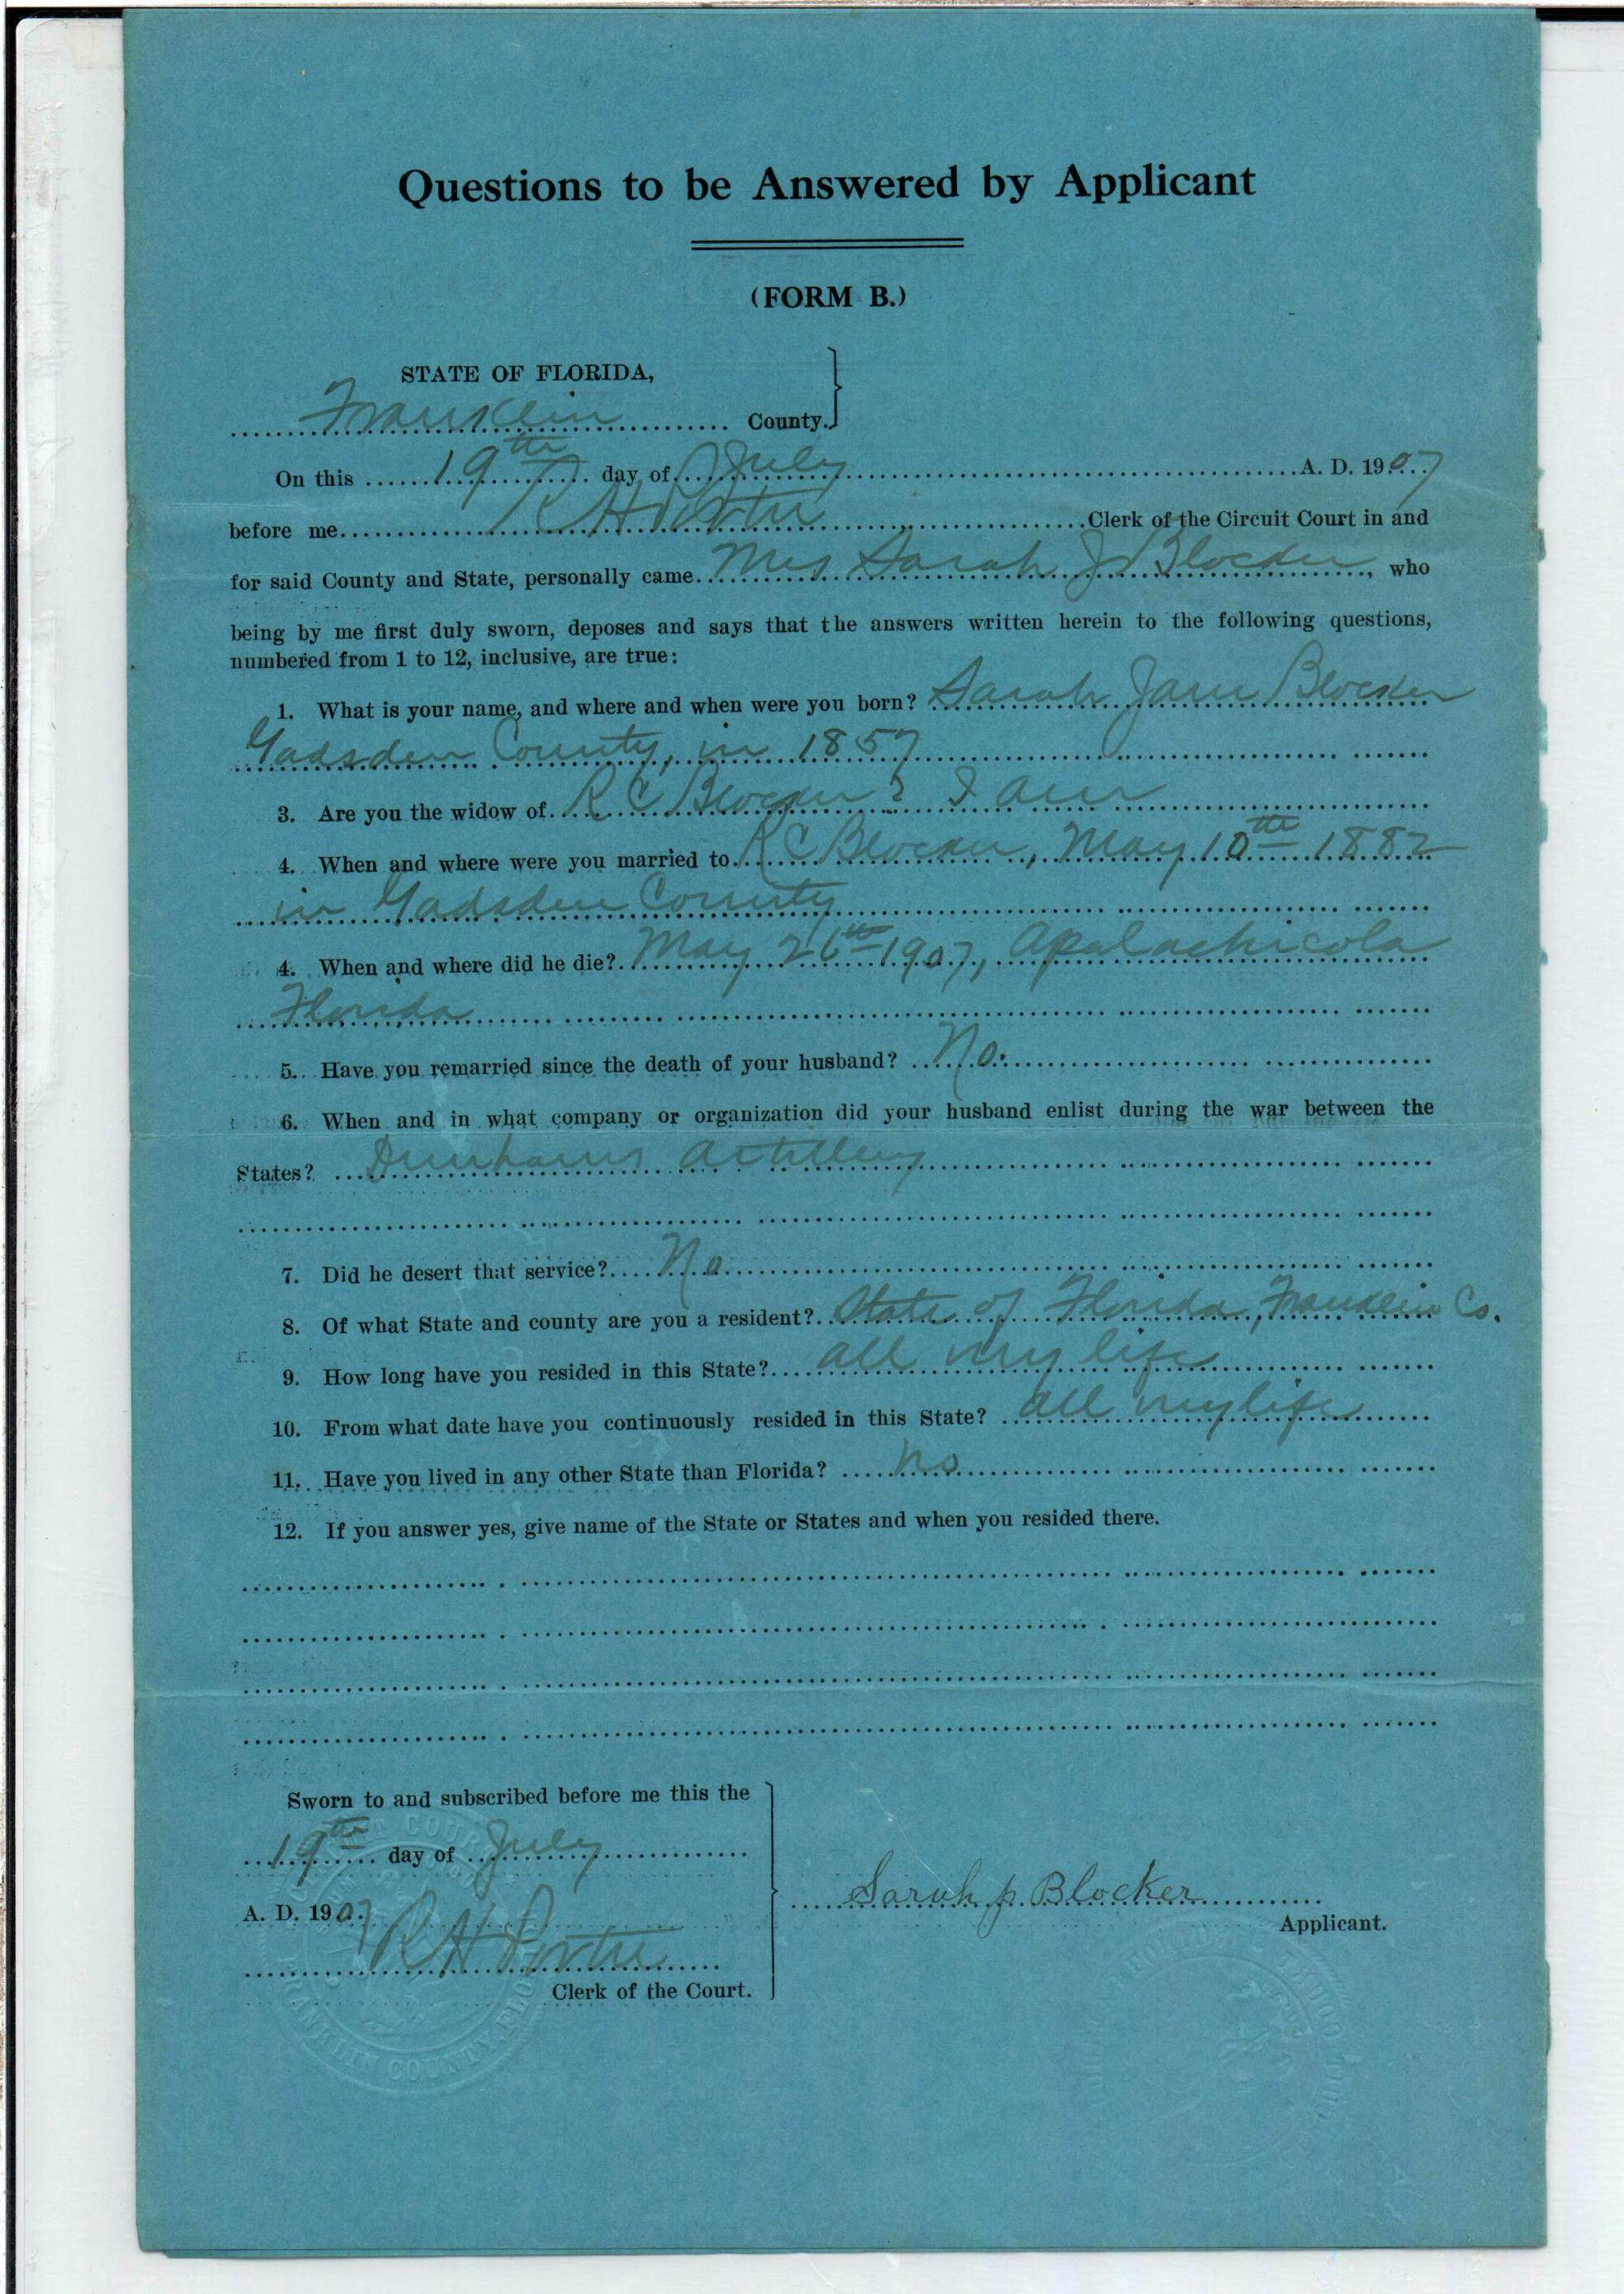 Questions to be Answered by Applicant
(FORM B.)
STATE OF FLORIDA,
Franklin County.
On this 19th day of July A. D. 1907
before me R H Porter Clerk of the Circuit Court in and
for said County and State, personally came Mrs Sarah J Blocker, who
being by me first duly sworn, deposes and says that the answers written herein to the following questions,
numbered from 1 to 12, inclusive, are true:
1. What is your name, and where and when were you born? Sarah Jane Blocker
Gadsden County, in 1857
3. Are you the widow of R C Blocker? I am
4. When and where were you married to R C Blocker, May 10th 1882
in Gadsden County
4. When and where did he die? May 26th 1907, Apalachicola
Florida
5. Have you remarried since the death of your husband? No.
6. When and in what company or organization did your husband enlist during the war between the
States? Dunhams Artillery
7. Did he desert that service? No
8. Of what State and county are you a resident? State of Florida, Franklin Co.
9. How long have you resided in this State? all my life
10. From what date have you continuously resided in this State? all my life
11. Have you lived in any other State than Florida? no
12. If you answer yes, give name of the State or States and when you resided there.
Sworn to and subscribed before me this the
19th day of July
A. D. 1907
R H Porter
Clerk of the Court.
Sarah J. Blocker
Applicant.
FRANKLIN COUNTY, FLO